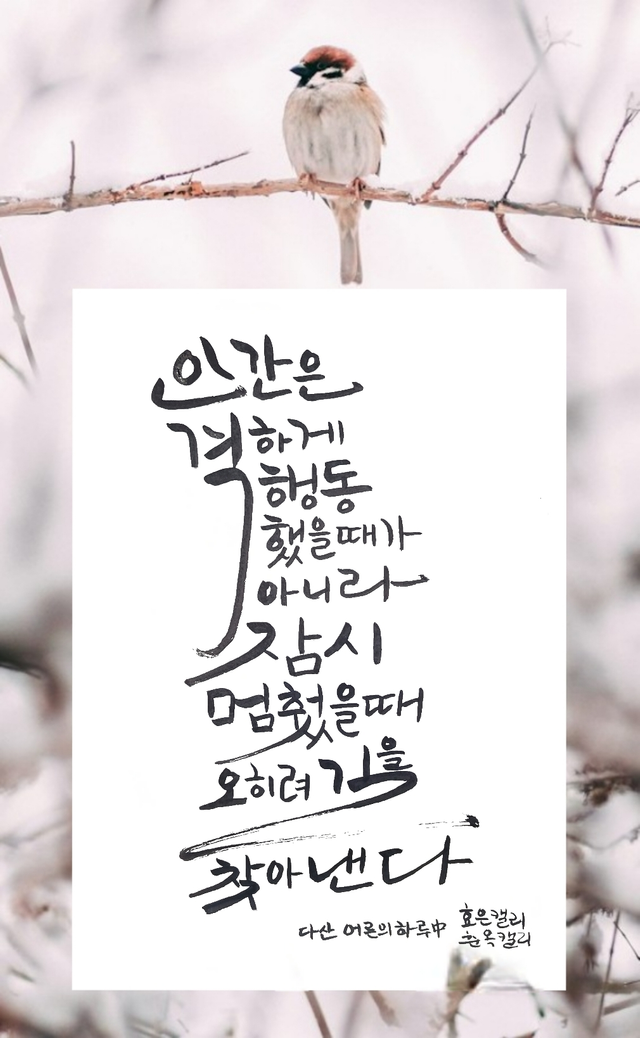 인간은
격하게
행동
했을때가
아니라
잠시
멈췄을때
오히려 길을
찾아낸다
다산 어른의하루中
효은캘리
캘리